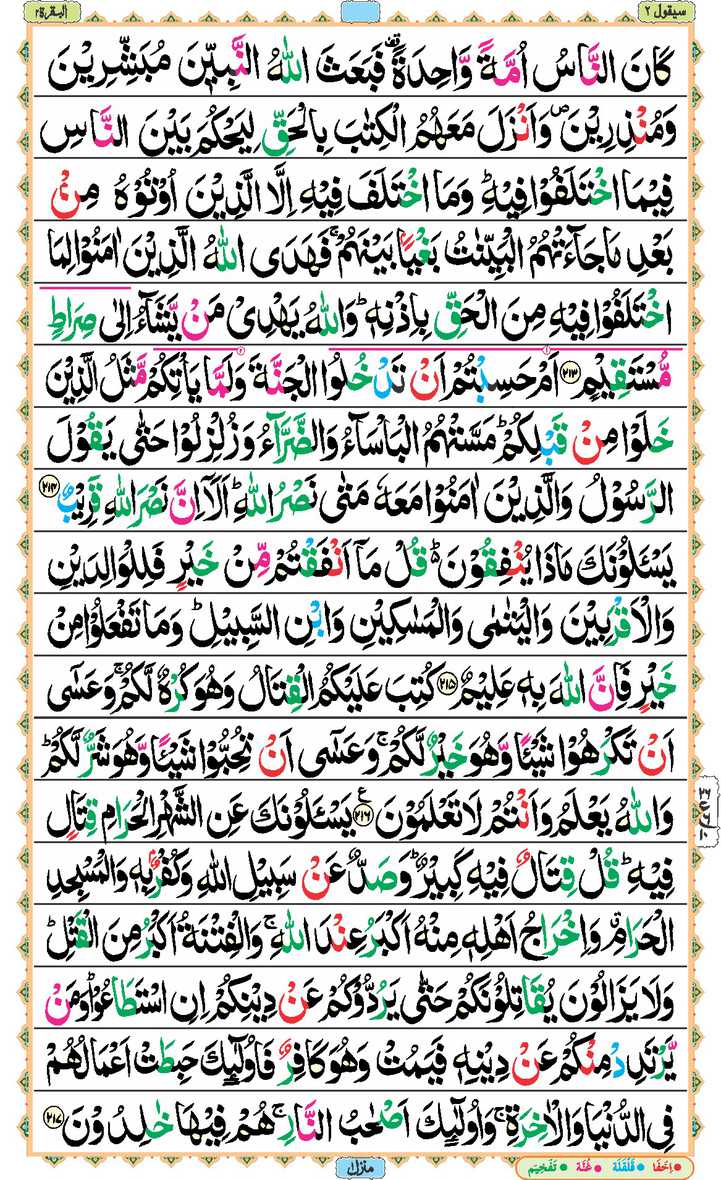 سيقول ٢
البقرة ٢
كَانَ النَّاسُ اُمَّةً وَّاحِدَةً فَبَعَثَ اللّٰهُ النَّبِيّٖنَ مُبَشِّرِيْنَ
وَمُنْذِرِيْنَ ۪ وَاَنْزَلَ مَعَهُمُ الْكِتٰبَ بِالْحَقِّ لِيَحْكُمَ بَيْنَ النَّاسِ
فِيْمَا اخْتَلَفُوْا فِيْهِ ؕ وَمَا اخْتَلَفَ فِيْهِ اِلَّا الَّذِيْنَ اُوْتُوْهُ مِنْۢ
بَعْدِ مَا جَآءَتْهُمُ الْبَيِّنٰتُ بَغْيًۢا بَيْنَهُمْ ۚ فَهَدَى اللّٰهُ الَّذِيْنَ اٰمَنُوْا لِمَا
اخْتَلَفُوْا فِيْهِ مِنَ الْحَقِّ بِاِذْنِهٖ ؕ وَاللّٰهُ يَهْدِيْ مَنْ يَّشَآءُ اِلٰى صِرَاطٍ
مُّسْتَقِيْمٍ ﴿٢١٣﴾ اَمْ حَسِبْتُمْ اَنْ تَدْخُلُوا الْجَنَّةَ وَلَمَّا يَاْتِكُمْ مَّثَلُ الَّذِيْنَ
خَلَوْا مِنْ قَبْلِكُمْ ؕ مَسَّتْهُمُ الْبَاْسَآءُ وَالضَّرَّآءُ وَزُلْزِلُوْا حَتّٰى يَقُوْلَ
الرَّسُوْلُ وَالَّذِيْنَ اٰمَنُوْا مَعَهٗ مَتٰى نَصْرُ اللّٰهِ ؕ اَلَآ اِنَّ نَصْرَ اللّٰهِ قَرِيْبٌ ﴿٢١٤﴾
يَسْـَٔلُوْنَكَ مَاذَا يُنْفِقُوْنَ ؕ قُلْ مَآ اَنْفَقْتُمْ مِّنْ خَيْرٍ فَلِلْوَالِدَيْنِ
وَالْاَقْرَبِيْنَ وَالْيَتٰمٰى وَالْمَسٰكِيْنِ وَابْنِ السَّبِيْلِ ؕ وَمَا تَفْعَلُوْا مِنْ
خَيْرٍ فَاِنَّ اللّٰهَ بِهٖ عَلِيْمٌ ﴿٢١٥﴾ كُتِبَ عَلَيْكُمُ الْقِتَالُ وَهُوَ كُرْهٌ لَّكُمْ ۚ وَعَسٰٓى
اَنْ تَكْرَهُوْا شَيْـًٔا وَّهُوَ خَيْرٌ لَّكُمْ ۚ وَعَسٰٓى اَنْ تُحِبُّوْا شَيْـًٔا وَّهُوَ شَرٌّ لَّكُمْ ؕ
وَاللّٰهُ يَعْلَمُ وَاَنْتُمْ لَا تَعْلَمُوْنَ ﴿٢١٦﴾ ع يَسْـَٔلُوْنَكَ عَنِ الشَّهْرِ الْحَرَامِ قِتَالٍ
فِيْهِ ؕ قُلْ قِتَالٌ فِيْهِ كَبِيْرٌ ؕ وَصَدٌّ عَنْ سَبِيْلِ اللّٰهِ وَكُفْرٌۢ بِهٖ وَالْمَسْجِدِ
الْحَرَامِ ۗ وَاِخْرَاجُ اَهْلِهٖ مِنْهُ اَكْبَرُ عِنْدَ اللّٰهِ ۚ وَالْفِتْنَةُ اَكْبَرُ مِنَ الْقَتْلِ ؕ
وَلَا يَزَالُوْنَ يُقَاتِلُوْنَكُمْ حَتّٰى يَرُدُّوْكُمْ عَنْ دِيْنِكُمْ اِنِ اسْتَطَاعُوْا ؕ وَمَنْ
يَّرْتَدِدْ مِنْكُمْ عَنْ دِيْنِهٖ فَيَمُتْ وَهُوَ كَافِرٌ فَاُولٰٓئِكَ حَبِطَتْ اَعْمَالُهُمْ
فِي الدُّنْيَا وَالْاٰخِرَةِ ۚ وَاُولٰٓئِكَ اَصْحٰبُ النَّارِ ۚ هُمْ فِيْهَا خٰلِدُوْنَ ﴿٢١٧﴾
منزل
اِخفَا قَلْقَلَة غُنَّة تَفْخِيْم